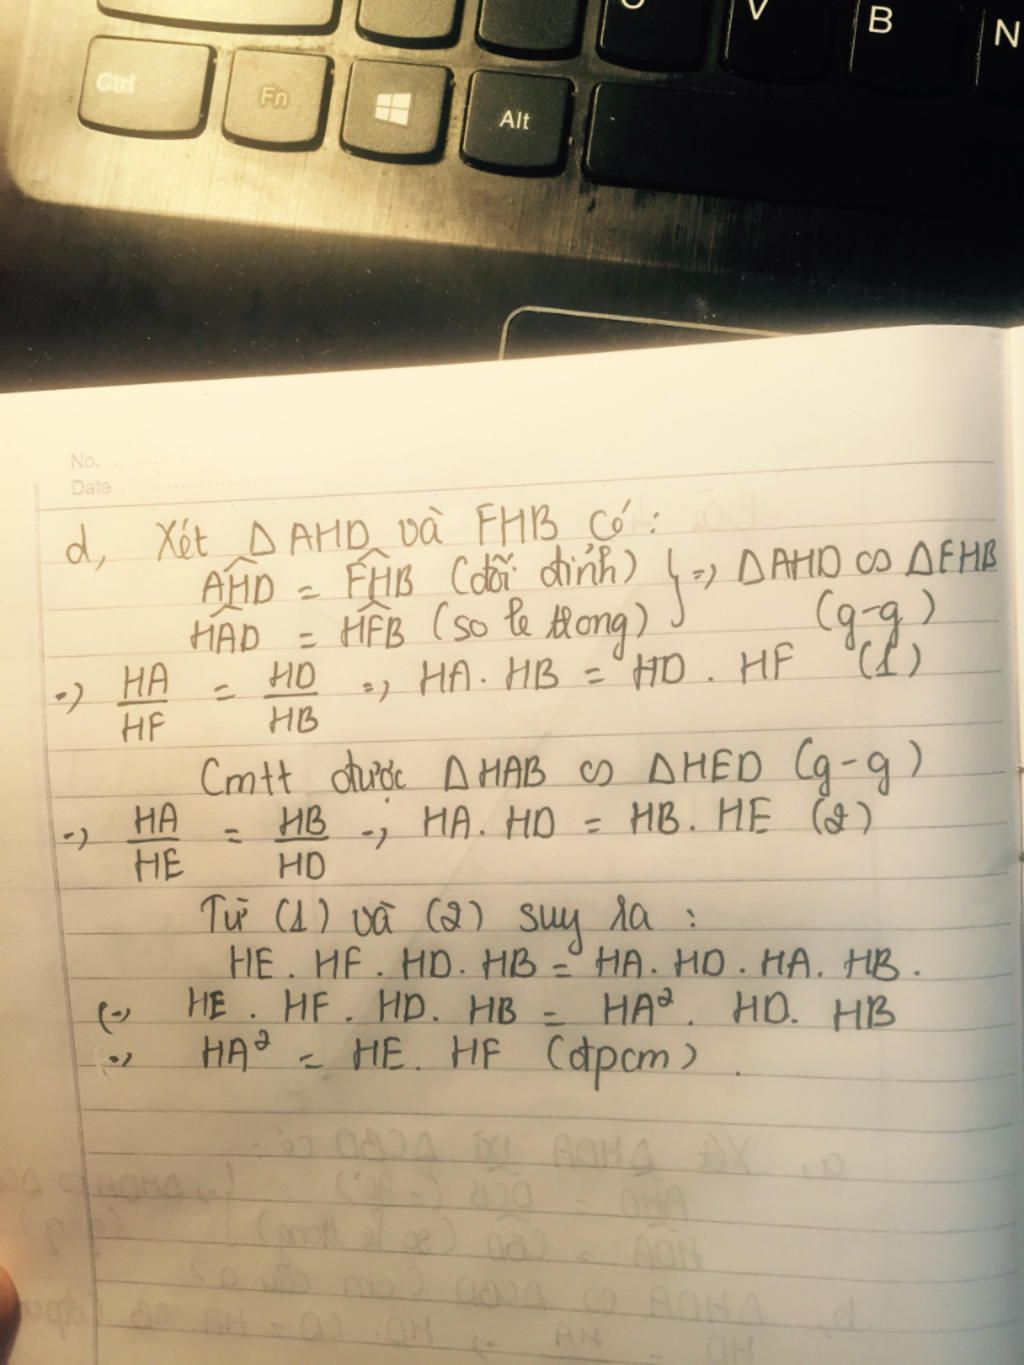 V
B
N
Ctrl
Fn
Alt
No.
Date
d, Xét ΔAHD và FHB có:
AHD = FHB (đối đỉnh) } => ΔAHD ∽ ΔFHB
HAD = HFB (so le trong) (g-g)
=> HA/HF = HD/HB => HA. HB = HD. HF (1)
Cmtt được ΔHAB ∽ ΔHED (g-g)
=> HA/HE = HB/HD => HA. HD = HB. HE (2)
Từ (1) và (2) suy ra :
HE. HF. HD. HB = HA. HD. HA. HB.
(=> HE. HF. HD. HB = HA². HD. HB
=> HA² = HE. HF (đpcm).